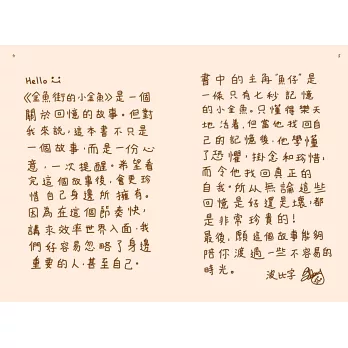 Hello
《金魚街的小金魚》是一個
關於回憶的故事。但對
我來說，這本書不只是
一個故事，而是一份心
意，一次提醒。希望看
完這個故事後，會更珍
惜自己身邊所擁有。
因為在這個節奏快，
講求效率世界入面，我
們好容易忽略了身邊
重要的人，甚至自己。
書中的主角“魚仔”是
一條只有七秒記憶
的小金魚。只懂得樂天
地活着，但當他找回自
己的記憶後，他學懂
了恐懼，掛念和珍惜；
而令他找回真正的
自我。所以無論這些
回憶是好還是壞，都
是非常珍貴的！
最後，願這個故事能夠
陪你渡過一些不容易的
時光。
波比字